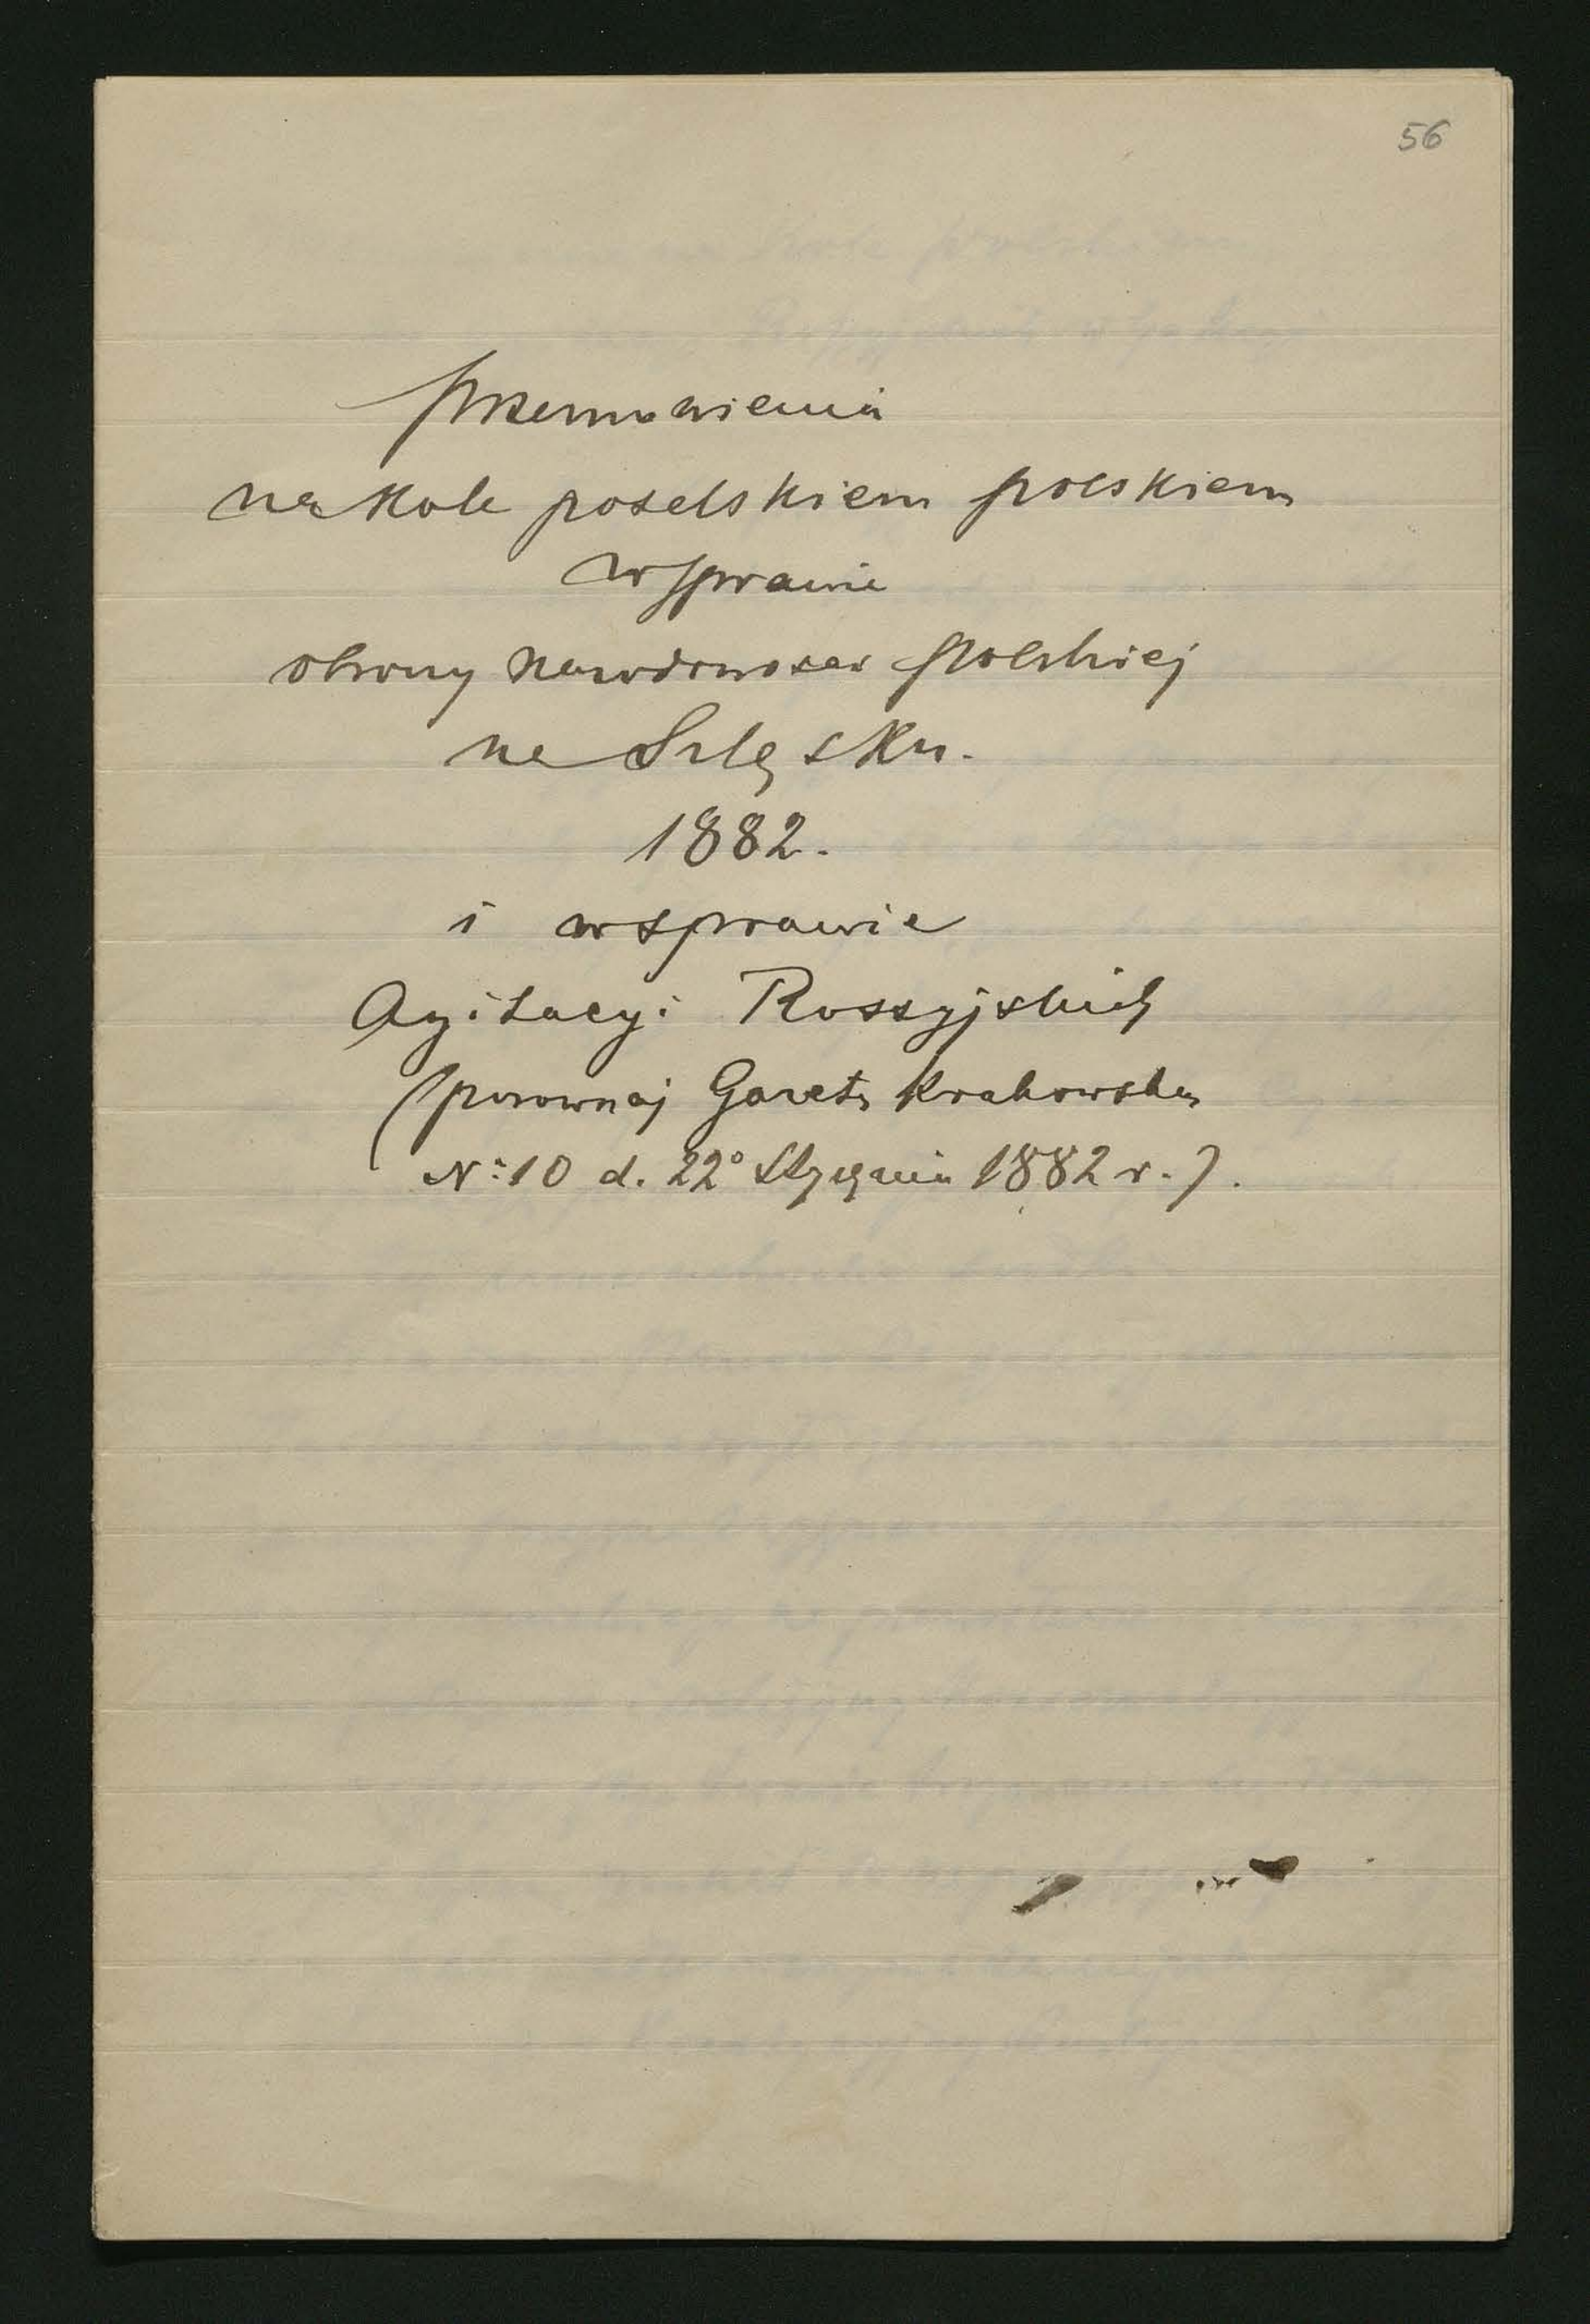 56
Przemowienia
na Kole poselskiem polskiem
w sprawie
obrony Narodowości polskiej
na Szląsku.
1882.
i w sprawie
Agitacyi Rossyjskich
(porownaj Gazetę Krakowską
N: 10 d. 22° Stycznia 1882 r.).